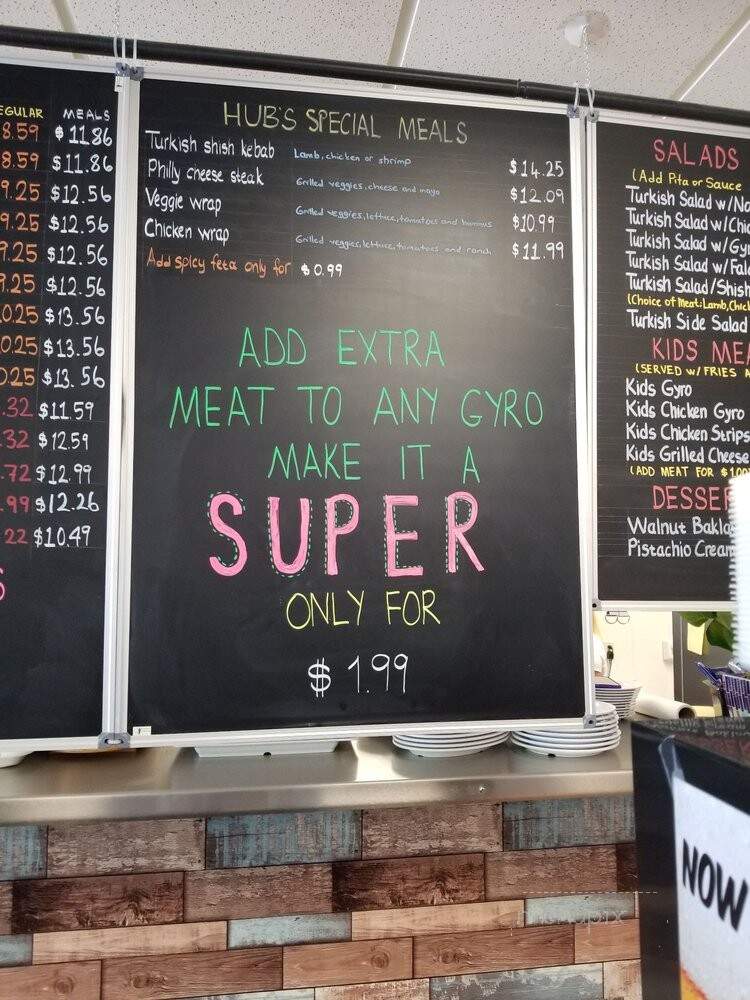 EGULAR MEALS
8.59 $11.86
8.59 $11.86
9.25 $12.56
9.25 $12.56
9.25 $12.56
9.25 $12.56
0.25 $13.56
0.25 $13.56
0.25 $13.56
.32 $11.59
.32 $12.59
.72 $12.99
.99 $12.26
22 $10.49
S
HUB'S SPECIAL MEALS
Turkish shish kebab Lamb, chicken or shrimp $14.25
Philly cheese steak Grilled veggies, cheese and mayo $12.09
Veggie wrap Grilled veggies, lettuce, tomatoes and hummus $10.99
Chicken wrap Grilled veggies, lettuce, tomatoes and ranch $11.99
Add spicy feta only for $0.99
ADD EXTRA
MEAT TO ANY GYRO
MAKE IT A
SUPER
ONLY FOR
$1.99
SALADS
(Add Pita or Sauce
Turkish Salad w/No
Turkish Salad w/Chic
Turkish Salad w/Gy
Turkish Salad w/Fal
Turkish Salad/Shish
(Choice of Meat: Lamb, Chick
Turkish Side Salad
KIDS MEA
(SERVED W/ FRIES A
Kids Gyro
Kids Chicken Gyro
Kids Chicken Strips
Kids Grilled Cheese
(ADD MEAT FOR $1.00
DESSER
Walnut Bakla
Pistachio Cream
NOW